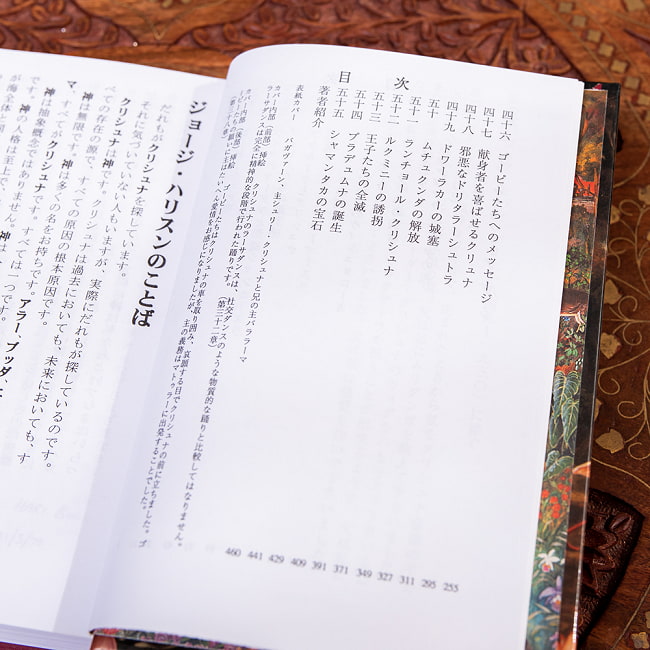 目次
四十六 ゴーピーたちへのメッセージ
四十七 献身者を喜ばせるクリュナ
四十八 邪悪なドリタラーシュトラ
四十九 ドワーラカーの城塞
五十 ムチュクンダの解放
五十一 ランチョール・クリシュナ
五十二 ルクミニーの誘拐
五十三 王子たちの全滅
五十四 プラデュムナの誕生
五十五 シャマンタカの宝石
著者紹介
460 441 429 409 391 371 349 327 311 295 255
表紙カバー バガヴァーン、主シュリー・クリシュナと兄の主バララーマ
カバー内部 (前部) 挿絵 クリシュナのラーサダンスは、社交ダンスのような物質的な踊りと比較してはなりません。
ラーサダンスは完全に精神的な段階で行われた踊りです。 (第三十二章)
カバー内部 (後部) 挿絵 ゴーピーたちはクリシュナの車を取り囲み、哀願する目でクリシュナの前に立ちました。ゴ
主の義務はマトゥラーに出発することでした。
ジョージ・ハリスンのことば
だれもがクリシュナを探しています。
それに気づいていない人もいますが、実際にだれもが探しているのです。
クリシュナは神です。
べての存在の源で、すべての原因の根本原因です。
神は無限です。クリシュナは過去においても、未来においても、す
神は多くの名をお持ちです。
アラー、ブッダ、エ
マ、すべてがクリシュナです。
神は抽象概念ではありません。すべては一つです。
です。神の人格は至上で、